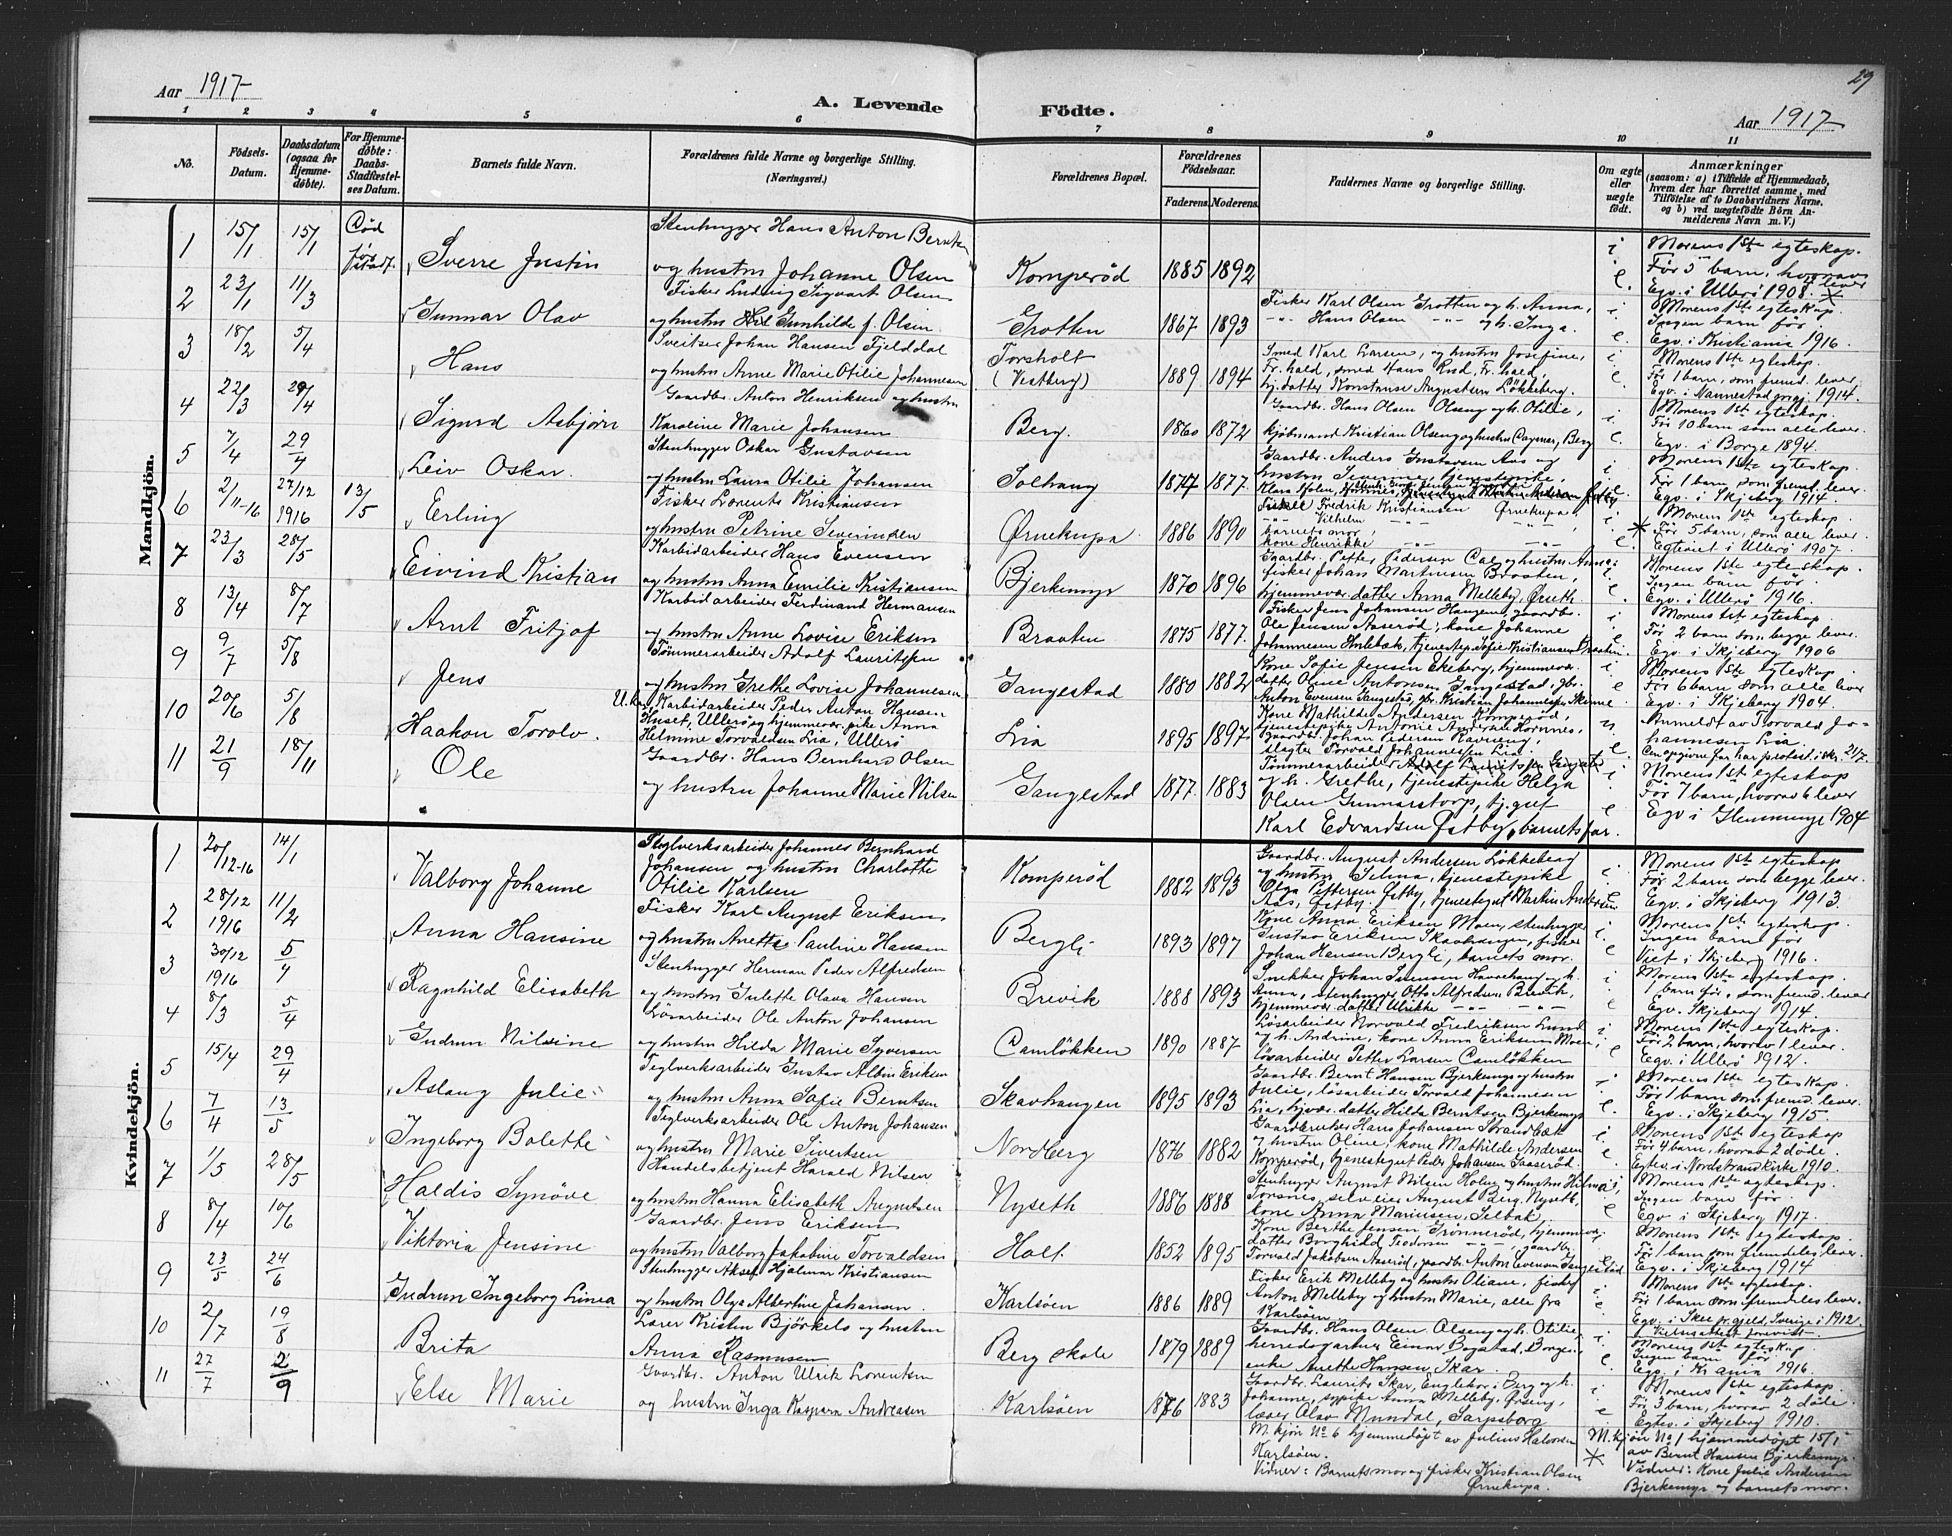 29
Aar 1917
A. Levende Födte.
Aar 1917
1 2 3 4 5 6 7 8 9 10 11
No.
Födsels-Datum.
Daabsdatum (ogsaa for Hjemme-döbte).
For Hjemme-döbte: Daabs-Stadfæstel-ses Datum.
Barnets fulde Navn.
Forældrenes fulde Navne og borgerlige Stilling. (Næringsvei.)
Forældrenes Bopæl.
Forældrenes Födselsaar.
Faderens. Moderens.
Faddernes Navne og borgerlige Stilling.
Om ægte eller uægte födt.
Anmærkninger
(saasom: a) i Tilfælde af Hjemmedaab, hvem der har forrettet samme, med Tilföielse af to Daabsvidners Navne, og b) ved uægtefödte Börn An-melderens Navn m. V.)
Mandkjön.
1 15/1 15/1 Død før stadf. Sverre Justin
Stenhugger Hans Anton Berntsen
og hustru Johanne Olsen
Komperød 1885 1892
Morens 1ste egteskap.
Før 5 barn, hvorav
lever
Egv. i Ullerø 1908. *
2 23/1 11/3 Gunnar Olav
Fisker Ludvig Sigvart Olsen
og hustru Gunhilde f. Olsen
Grotten 1867 1893
Fisker Karl Olsen Grotten og h. Anna,
Hans Olsen og h. Inga.
Morens 1ste egteskap.
Ingen barn før.
Egv. i Kristiania 1916.
3 18/2 5/4 Hans
Sveitser Johan Hansen Fjelddal
og hustru Anne Marie Otilie Johannesen
Torsholt (Vestberg) 1889 1894
Smed Karl Larsen, og hustru Josefine,
Fr.hald, smed Hans Fr.hald,
hj. datter Konstanse Augustsen Løkkeberg.
Morens 1ste egteskap.
Før 1 barn, som fremd. lever,
Egv. i Nannestad prgj. 1914.
4 22/3 29/4 Sigurd Asbjørn
Gaardbr. Anton Henriksen og hustru
Karoline Marie Johansen
Berg. 1860 1872
Gaardbr. Hans Olsen Olseng og h. Otilie,
kjøbmand Kristian Olseng og hustru Berg
Morens 1st egteskap.
Før 10 barn som alle lever.
Egv. i Borge 1894.
5 7/4 29/4 Leiv Oskar.
Stenhugger Oskar Gustavsen
og hustru Laura Otilie Johansen
Solhaug 1877 1877.
Gaardbr. Anders Gustavsen Aas og
hustru tjenestepike,
Morens 1ste egteskap.
Før 1 barn, som fremd. lever.
Egv. i Skjeberg 1914.
6 2/11-16 27/12 1916 13/5 Erling
Fisker Lorents Kristiansen
og hustru Petrine Severinsen
Ørnekupa. 1886 1890
Fisker Fredrik Kristiansen Ørnekupa,
Vilhelm
barnets mor,
kone Henrikke
Morens 1ste egteskap.
* Før 5 barn, som alle lever.
Egteviet i Ullerø 1907.
7 23/3 28/5 Eivind Kristian
Karbidarbeider Hans Evensen
og hustru Anna Emilie Kristiansen
Bjerkemyr 1870 1896
Gaardbr. Petter Pedersen og hustru Anna,
fisker Johan Martinsen Braaten,
hjemmevær. datter Anna Melleby, Ørseth.
Morens 1ste egteskap.
Ingen barn før.
Egv. i Ullerø 1916.
8 13/4 8/7 Arnt Fritjof
Karbidarbeider Ferdinand Hermansen
og hustru Anne Lovise Eriksen
Braaten 1875 1877.
Fisker Jens Johansen Haugen, gaardbr.
Ole Jensen Aaserød, kone Johanne
Morens 1ste egteskap.
Før 2 barn som begge lever.
Egv. i Skjeberg 1906
9 9/7 5/8 Jens
Tømmerarbeider Adolf Lauritssen
og hustru Grethe Lovise Johannesen
Gangestad 1880 1882
Kone Sofie Jensen Ekeberg, hjemmevær.
datter Oline Antonesen Gangestad,
Anton Evensen Gangestad,
Morens 1ste egteskap.
Før 6 barn som alle lever
Egv. i Skjeberg 1904.
10 20/6 5/8 Haakon Torolv.
U.kar, Karbidarbeider Peder Anton Hansen
Huset, Ullerø og hjemmevær. pike Anna
Helmine Torvaldsen Lia, Ullerø
Lia 1895 1897
Kone Mathilde Andersen Komperød,
Gaardbr. Johan Pedersen Ravneng,
slagter Torvald Johannessen Lia.
Anmeldt av Torvald Jo-
hannesen Lia.
11 21/9 18/11 Ole
Gaardbr. Hans Bernhard Olsen
og hustru Johanne Marie Nilsen
Gangestad 1877. 1883
Tømmerarbeider Adolf Lauritssen Gangestad
og h. Grethe, tjenestepike Helga
Olsen Gunnarstorp, tj.gut
Karl Edvardsen Østby, barnets far.
Morens 1st egteskap
Før 7 barn, hvorav 6 lever
Egv i Glemminge 1904
Kvindekjön.
1 20/12-16 14/1 Valborg Johanne
Teglverksarbeider Johannes Bernhard
Johansen og hustru Charlotte
Otilie Karlsen
Komperød 1882 1893
Gaardbr. August Andersen Løkkeberg
og hustru Selma, tjenestepike
Olga Pettersen Østby, tjenestegut Martin Andersen
Aas, Østby.
Morens 1ste egteskap
Før 2 barn som begge lever.
Egv. i Skjeberg 1913.
2 28/12 1916 11/2 Anna Hansine
Fisker Karl August Eriksen
og hustru Anette Pauline Hansen
Bergli 1893 1897
Kone Anna Eriksen Moen, stenhugger
Gustav Eriksen Skavhaugen, fisker
Johan Hansen Bergli, barnets mor.
Morens 1ste egteskap.
Ingen barn før
Viet i Skjeberg 1916.
3 30/12 1916 5/4 Ragnhild Elisabeth
Stenhugger Herman Peder Alfredsen
og hustru Julette Olava Hansen
Brevik 1888 1893
Snekker Johan Svensen Havrehaug og h.
Anna, stenhugger Otto Alfredsen Brevik,
hjemmevær. datter Ulrikke
Morens 1ste egteskap.
1 barn før, som fremd. lever
Egv. Skjeberg 1914.
4 8/3 5/4 Gudrun Nilsine
Løsarbeider Ole Anton Johansen
og hustru Hilda Marie Syversen
Camløkken 1890 1887
Løsarbeider Norvald Fredriksen Lund
og h. Andrine, kone Anna Eriksen Moen,
løsarbeider Petter Larsen Camløkken
Morens 1ste egteskap.
Før 2 barn, hvorav 1 lever.
Egv. i Ullerø 1912.
5 15/4 29/4 Aslaug Julie
Teglverksarbeider Gustav Albin Eriksen
og hustru Anna Sofie Berntsen
Skavhaugen 1895 1893
Gaardbr. Bernt Hansen Bjerkemyr og hustru
Julie, løsarbeider Torvald Johannesen
Lia, hjvær. datter Hilda Berntsen Bjerkemyr
Morens 1ste egteskap.
Før 1 barn som fremd. lever.
Egv. i Skjeberg 1915.
6 7/4 13/5 Ingeborg Bolette
Teglverksarbeider Ole Anton Johansen
og hustru Marie Sivertsen
Nordberg 1876 1882
Gaardbruker Hans Johansen Strandbæk
og hustru Oline, kone Mathilde Andersen
Komperød, tjenestegut Peder Johansen Gaaserød.
Morens 1ste egteskap
Før 4 barn, hvorav 2 døde.
Egtev. i Nordstrand kirke 1910.
7 1/5 28/5 Haldis Synøve
Handelsbetjent Harald Nilsen
og hustru Hanna Elisabeth Augustsen
Nyseth 1886 1888
Stenhugger August Nilsen Holm og hustru Hilma,
Torsnes, selveier August Berg, Nyseth,
kone Anna Mariusen, Selbak.
Morens 1ste egteskap.
Ingen barn før.
Egv. i Skjeberg 1917.
8 8/4 10/6 Viktoria Jensine
Gaardbr. Jens Eriksen
og hustru Valborg Jakobine Torvaldsen
Holt. 1852 1895
Kone Berthe Jensen Grønnerød, hjemmevær.
datter Borghild Teodorsen
Torvald Jakobsen Aaserød, gaardbr. Anton Evensen Gangestad
Morens 1ste egteskap.
Før 1 barn som fremdeles lever.
Egv. i Skjeberg 1914
9 23/5 24/6 Gudrun Ingeborg Linea
Stenhugger Aksel Hjalmar Kristiansen
og hustru Olga Albertine Johansen.
Karlsøen 1886 1889
Fisker Erik Melleby og hustru Oliane, fisker
Anton Melleby og hustru Marie, alle fra
Karlsøen
Morens 1ste egteskap.
Før 1 barn som fremdeles lever.
Egv. i Skee pr.gjeld, Sverige i 1912.
10 2/7 19/8 Brita
Lærer Kristen Bjørkels og hustru
Anna Rasmusen
Berg skole 1879 1889
Gaardbr. Hans Olsen Olseng og h. Otilie,
herredsgartner Einar Bogstad, Borge
enke Anette Hansen, Skar.
Morens 1st egteskap
Ingen barn før
Egv. i Kr.ania 1916.
11 27/7 2/9 Else Marie
Gaardbr. Anton Ulrik Lorentsen
og hustru Inga Kaspara Andreasen
Karlsøen 1876 1883
Gaardbr. Laurits Skar, Engleborg i Berg og h.
Johanne, sypike Anna Melleby, Ørseng,
lærer Olav Mundal, Sarpsborg
Morens 1ste egteskap.
Før 3 barn, hvorav 2 døde.
Egtev. i Skjeberg 1910.
M. kjøn No 6 hjemmedøpt av Julius Halvorsen
Karlsøen.
Vidner: Barnets mor og fisker Kristian Olsen
Ørnekupa.
M. kjøn No 1 hjemmedøpt 15/1
* av Bernt Hansen Bjerkemyr.
Vidner: Kone Julie Andersen
Bjerkemyr og barnets mor.